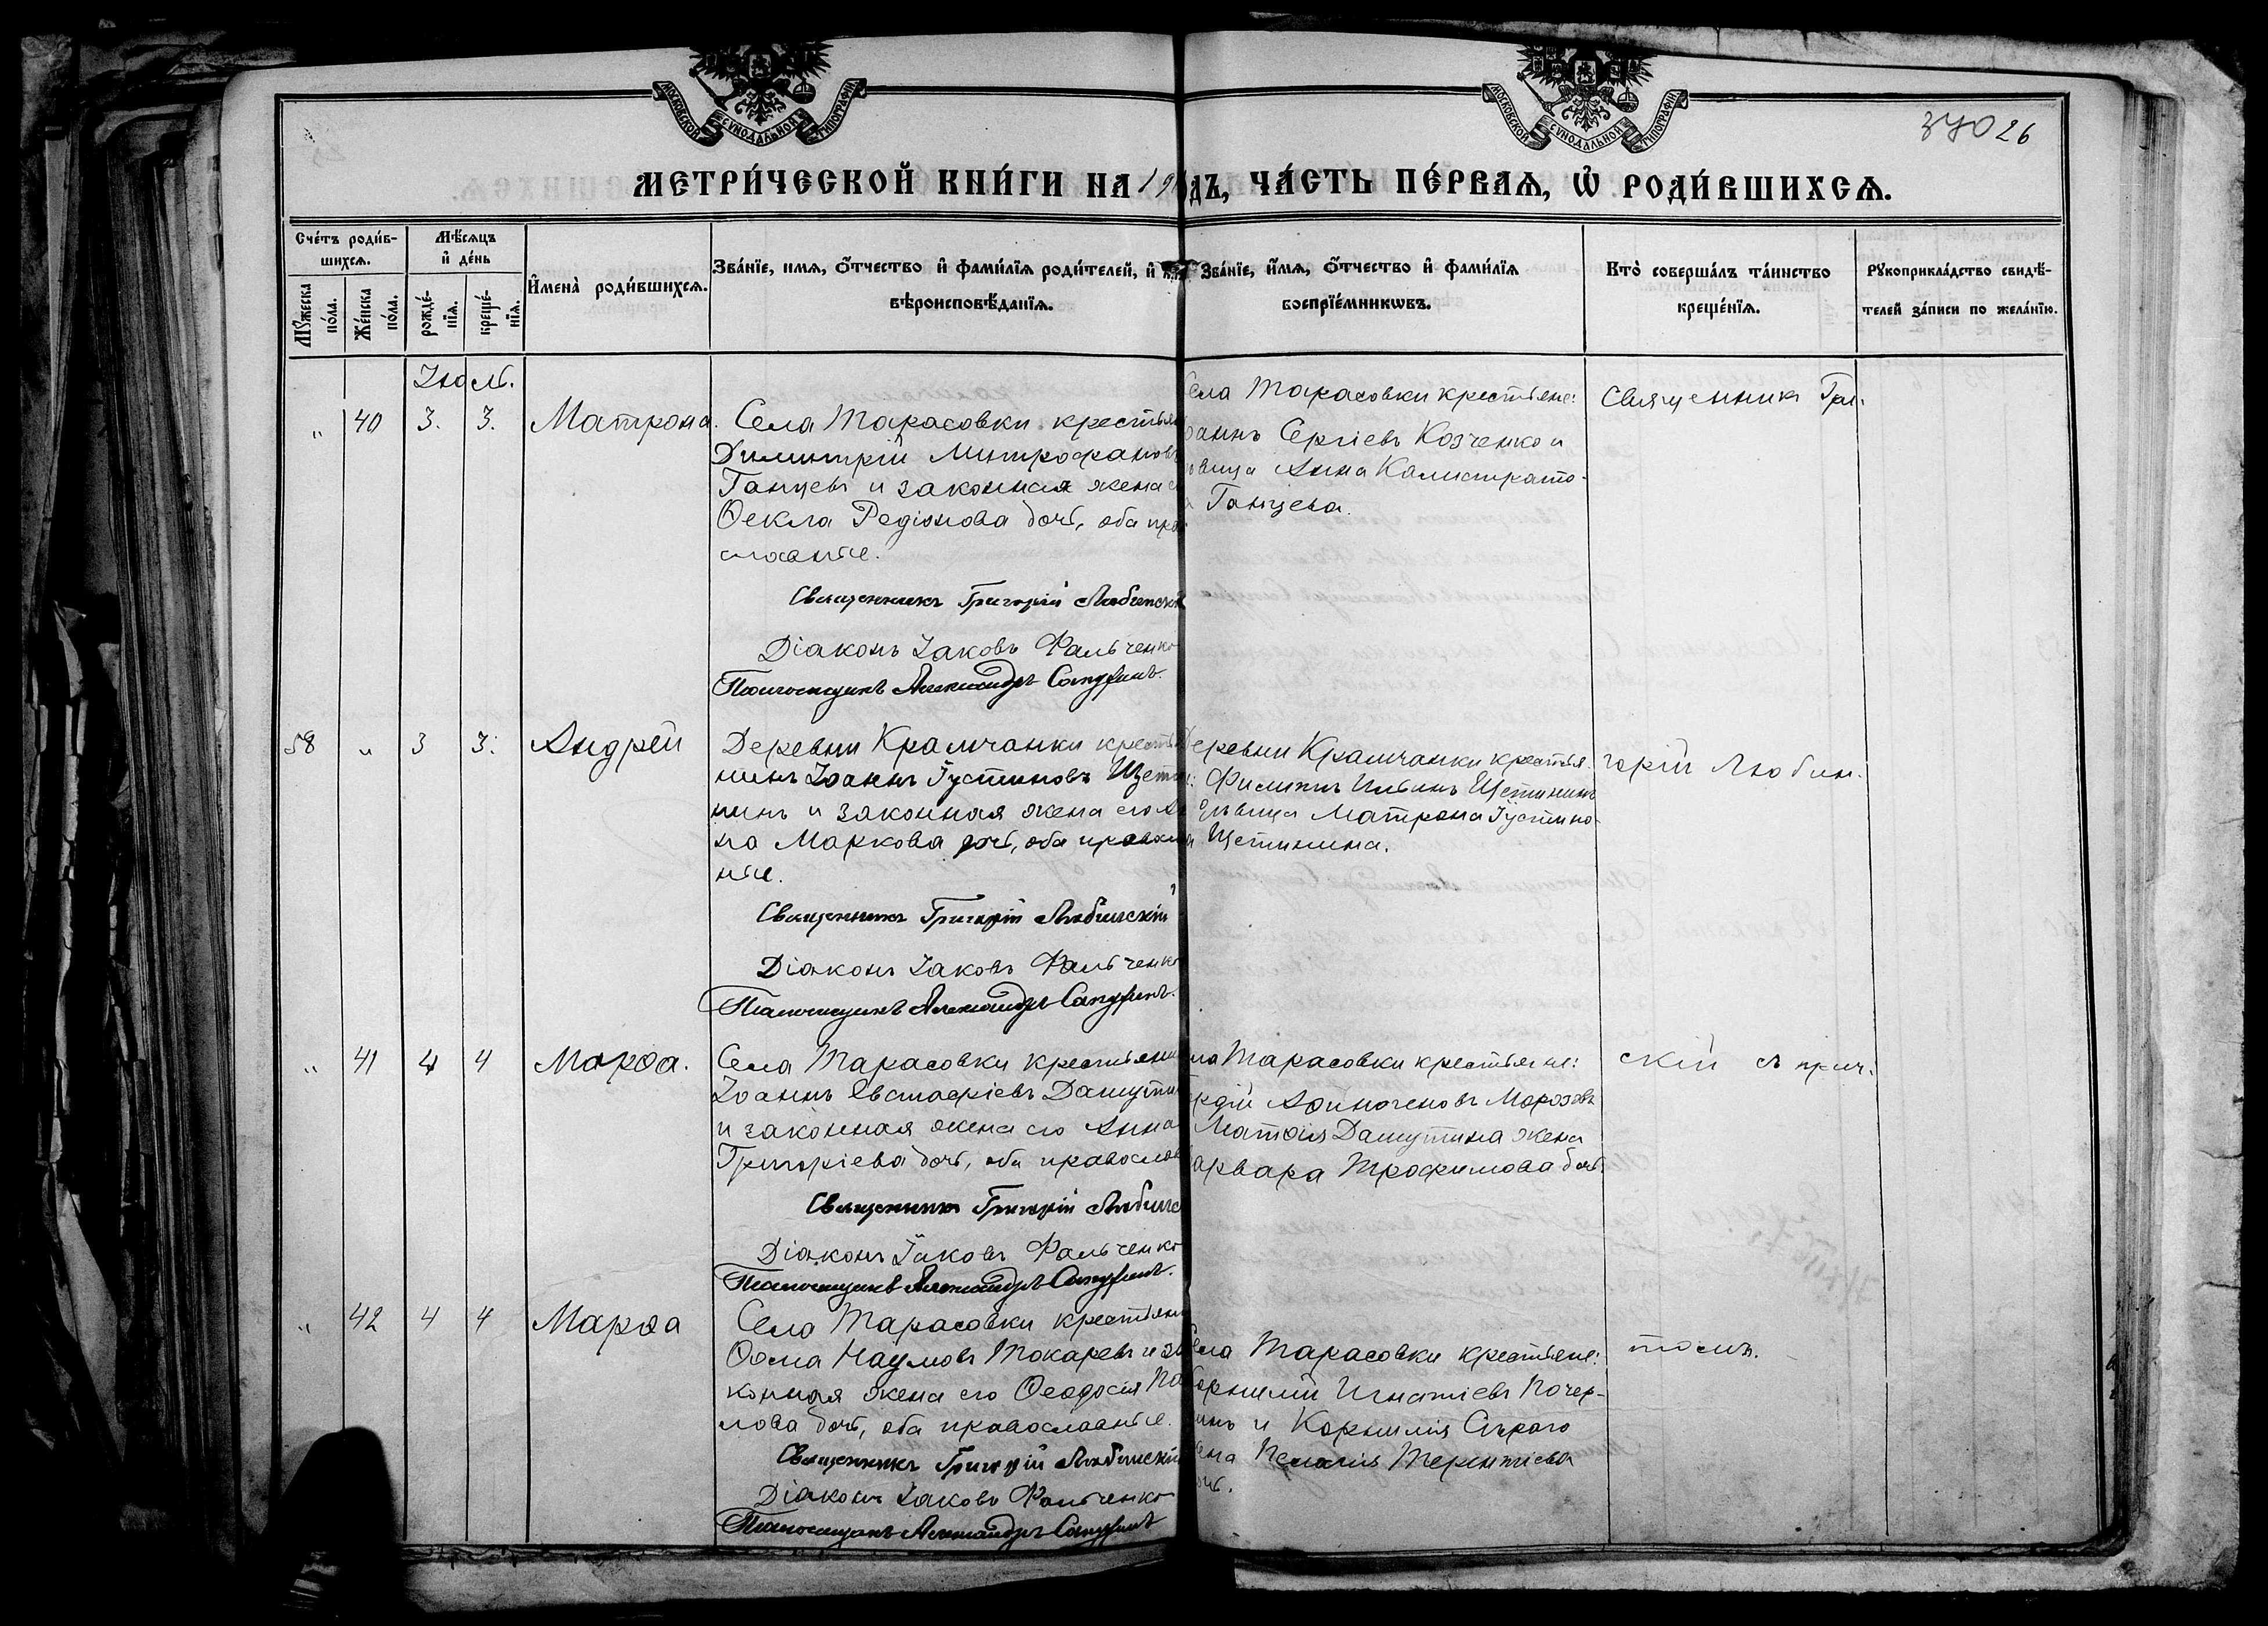 МОСКОВСКОЙ СѴНОДАЛЬНОЙ ТИПОГРАФІИ
МОСКОВСКОЙ СѴНОДАЛЬНОЙ ТИПОГРАФІИ
26
МЕТРИ́ЧЕСКОЙ КНИ́ГИ НА 19
ДЪ, ЧА́СТЬ ПЕ́РВАѦ, Ѡ҆ РОДИ́ВШИХСѦ.
Сче́тъ роди́в-
шихсѧ.
Мѣ́сѧцъ
и҆ де́нь
И҆мена̀ роди́вшихсѧ.
Зва́нїе, имѧ, ѻ҆́тчество и҆ фами́лїѧ роди́телей, и҆
вѣроисповѣ́данїѧ.
Зва́нїе, и҆́мѧ, ѻ҆́тчество и҆ фами́лїѧ
воспрїе́мникѡвъ.
Кто̀ соверша́лъ та́инство
креще́нїѧ.
Рꙋкоприкла́дство свидѣ́-
телей за́писи по жела́нїю.
Мꙋ́жеска
по́ла.
Же́нска
по́ла.
рожде́-
нїѧ.
креще́-
нїѧ.
Іюль.
„ 40 3. 3. Матрона.
Села Тарасовки крестьян
Димитрій Митрофановъ
Ганцевъ и законная жена
Ѳекла Родіонова дочь, оба пра
славные.
Священникъ Григорій Любинскій
Діаконъ Іаковъ Фальченко
Псаломщикъ Александръ
ела Тарасовки крестьяне:
оаннъ Сергіевъ Козченко и
овица Анна Калистрато-
Ганцева.
Священникъ Гри-
58 „ 3 3. Андрей
Деревни Крамчанки крестья
нинъ Іоаннъ Іустиновъ Щети
нинъ и законная жена его
на Маркова дочь, оба правосла
ные.
Священникъ Григорій Любинскій
Діаконъ Іаковъ Фальченко
Псаломщикъ Александръ
еревни Крамчанки крестья-
Филиппъ Ильинъ Щетининъ
дѣвица Матрона Іустино-
Щетинина.
горій Любин-
„ 41 4 4 Марѳа.
Села Тарасовки крестьянин
Іоаннъ Евстафіевъ Дашутин
и законная жена его Анна
Григоріева дочь, оба православ
Священникъ Григорій Любинс
Діаконъ Іаковъ Фальченко
Псаломщикъ Александръ
ла Тарасовки крестьяне:
Морозовъ
Матѳія Дашутина жена
арвара Трофимова дочь.
скій съ прич-
„ 42 4 4 Марѳа
Села Тарасовки крестьянин
Ѳома Наумовъ Токаревъ и за
конная жена его Ѳеодосія Па
лова дочь, оба православные.
Священникъ Григорій Любинскій
Діаконъ Іаковъ Фальченко
Псаломщикъ Александръ
ела Тарасовки крестьяне:
орнилій Игнатіевъ
инъ и Корнилія Сѣраго
ена Пелагія Терентіева
очь.
томъ.